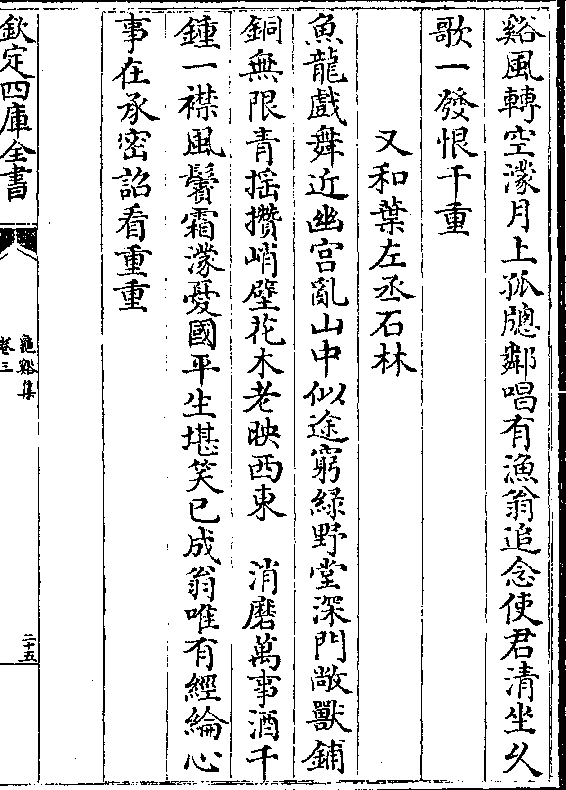 谿風轉空濛月上孤牕鄰唱有漁翁追念使君清坐久
歌一發恨千重
又和葉左丞石林
魚龍戲舞近幽宫亂山中似途窮綠野堂深門敞獸鋪
銅無限青揺攢峭壁花木老映西東　消磨萬事酒千
鍾一襟風鬢霜濛憂國平生堪笑已成翁唯有經綸心
事在承密詔看重重
欽定四庫全書
龜谿集
卷三
二十五